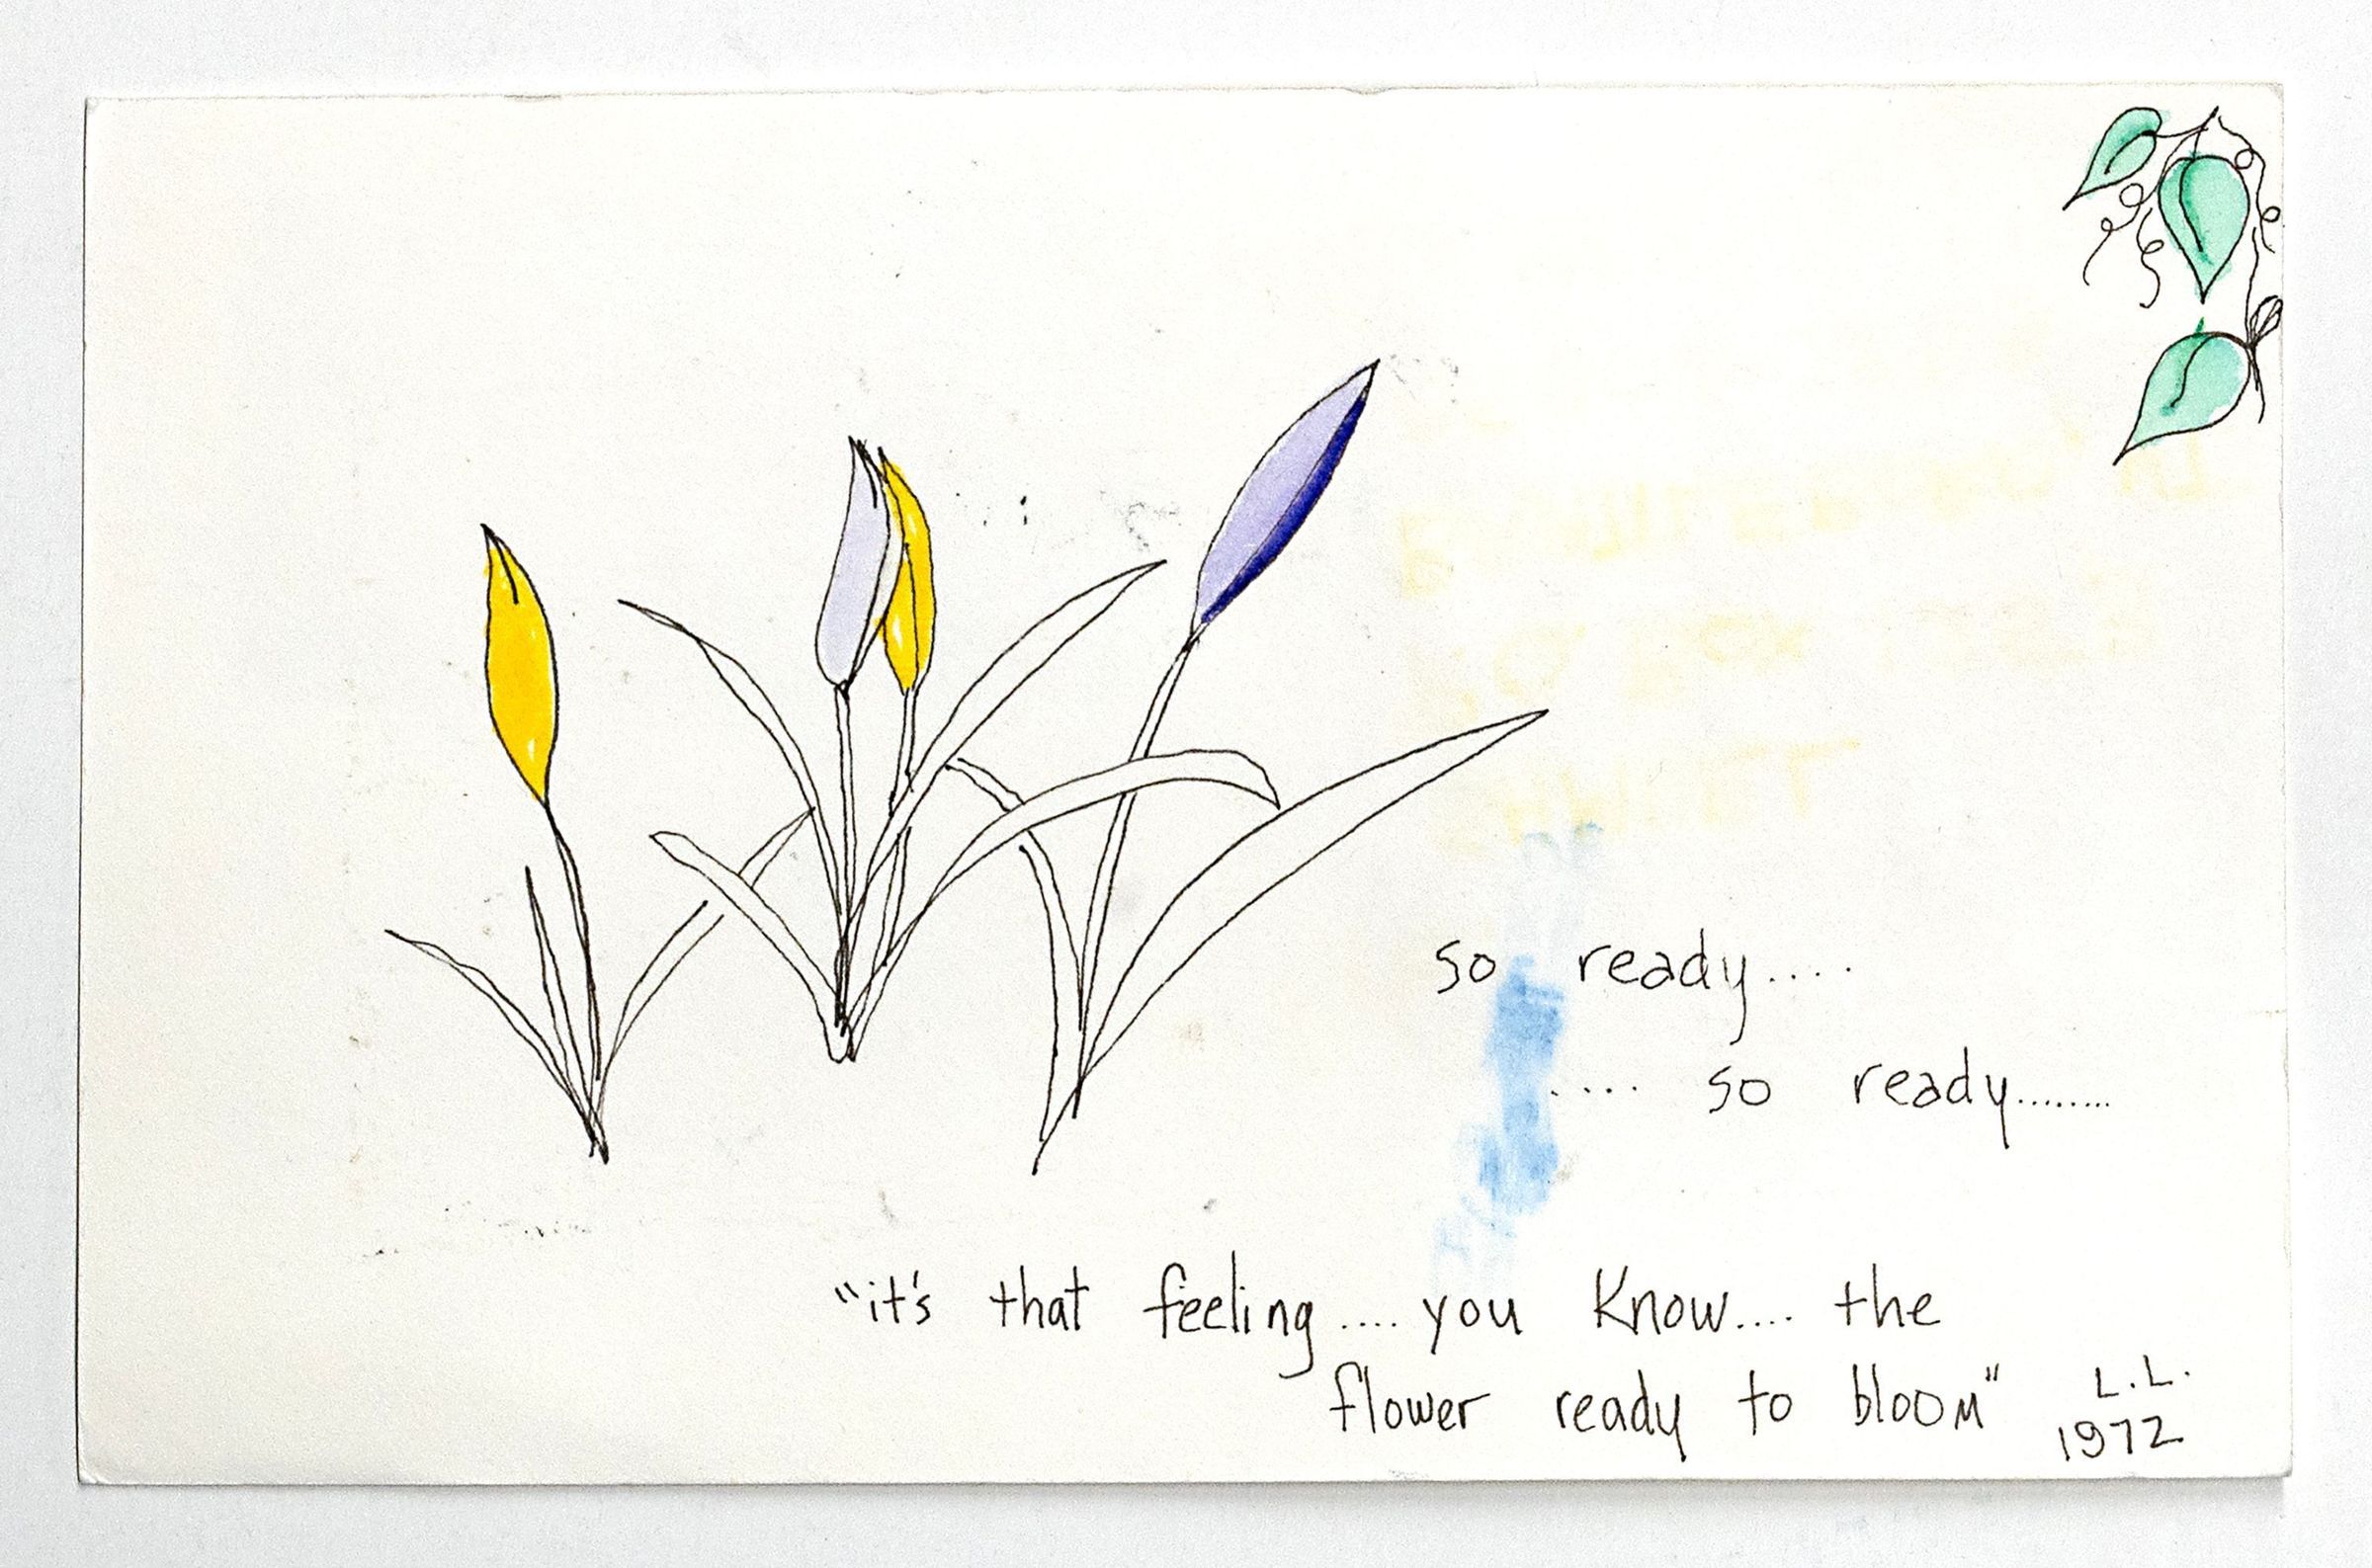 so ready....
.... so ready........
"it's that feeling .... you Know.... the
flower ready to bloom"
L.L.
1972